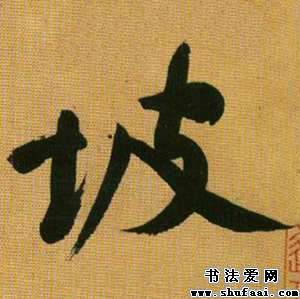 坡
书法爱网
www.shufaai.com